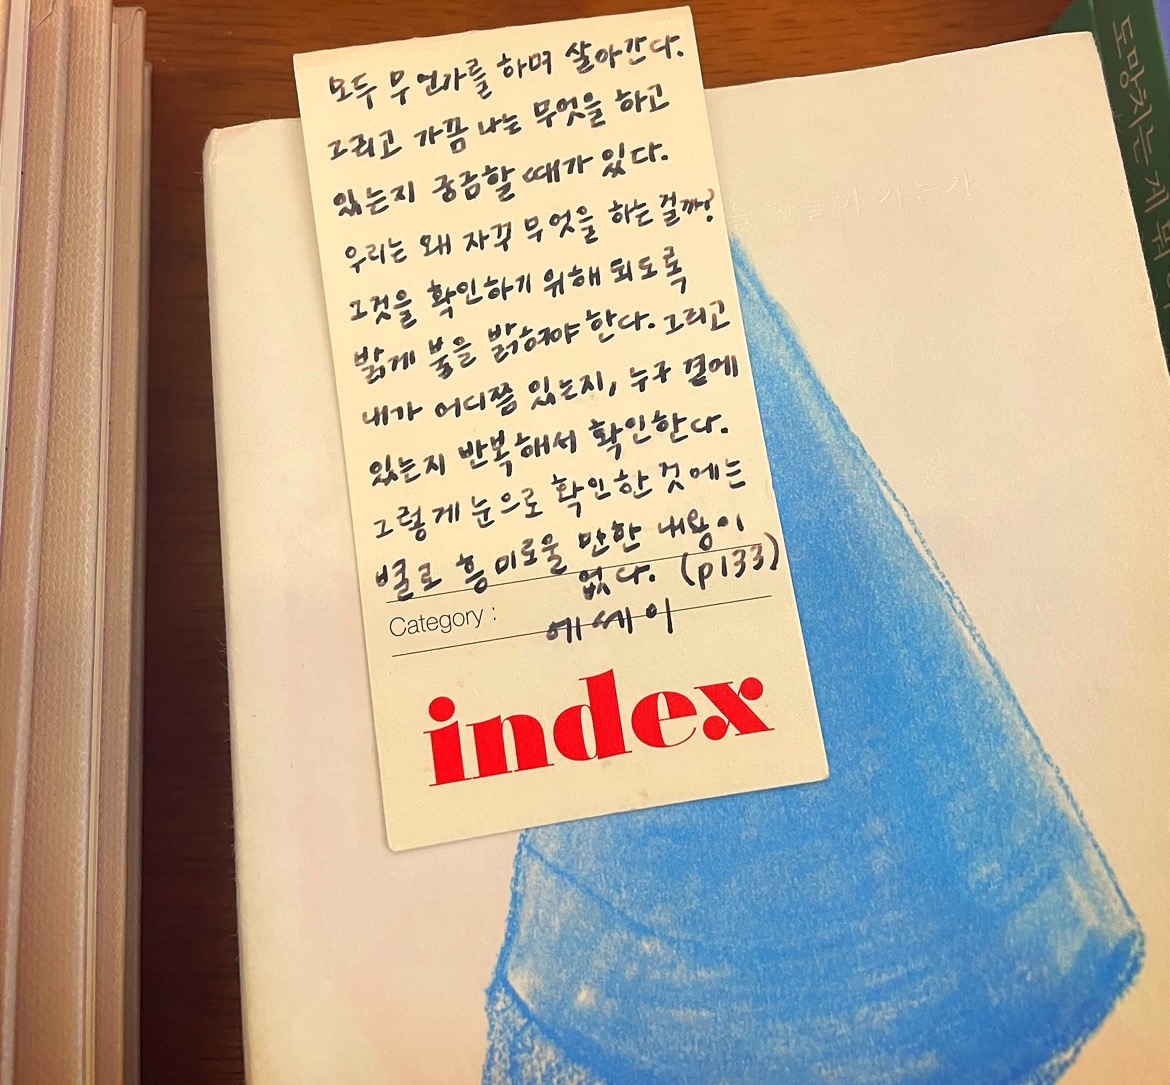 모두 무언가를 하며 살아간다.
그리고 가끔 나는 무엇을 하고
있는지 궁금할 때가 있다.
우리는 왜 자꾸 무엇을 하는걸까?
그것을 확인하기 위해 되도록
밝게 불을 밝혀야 한다. 그리고
내가 어디쯤 있는지, 누구 곁에
있는지 반복해서 확인한다.
그렇게 눈으로 확인한 것에는
별로 흥미로울 만한 내용이
없다. (p133)
Category :
에세이
index
도망치는 게 뭐